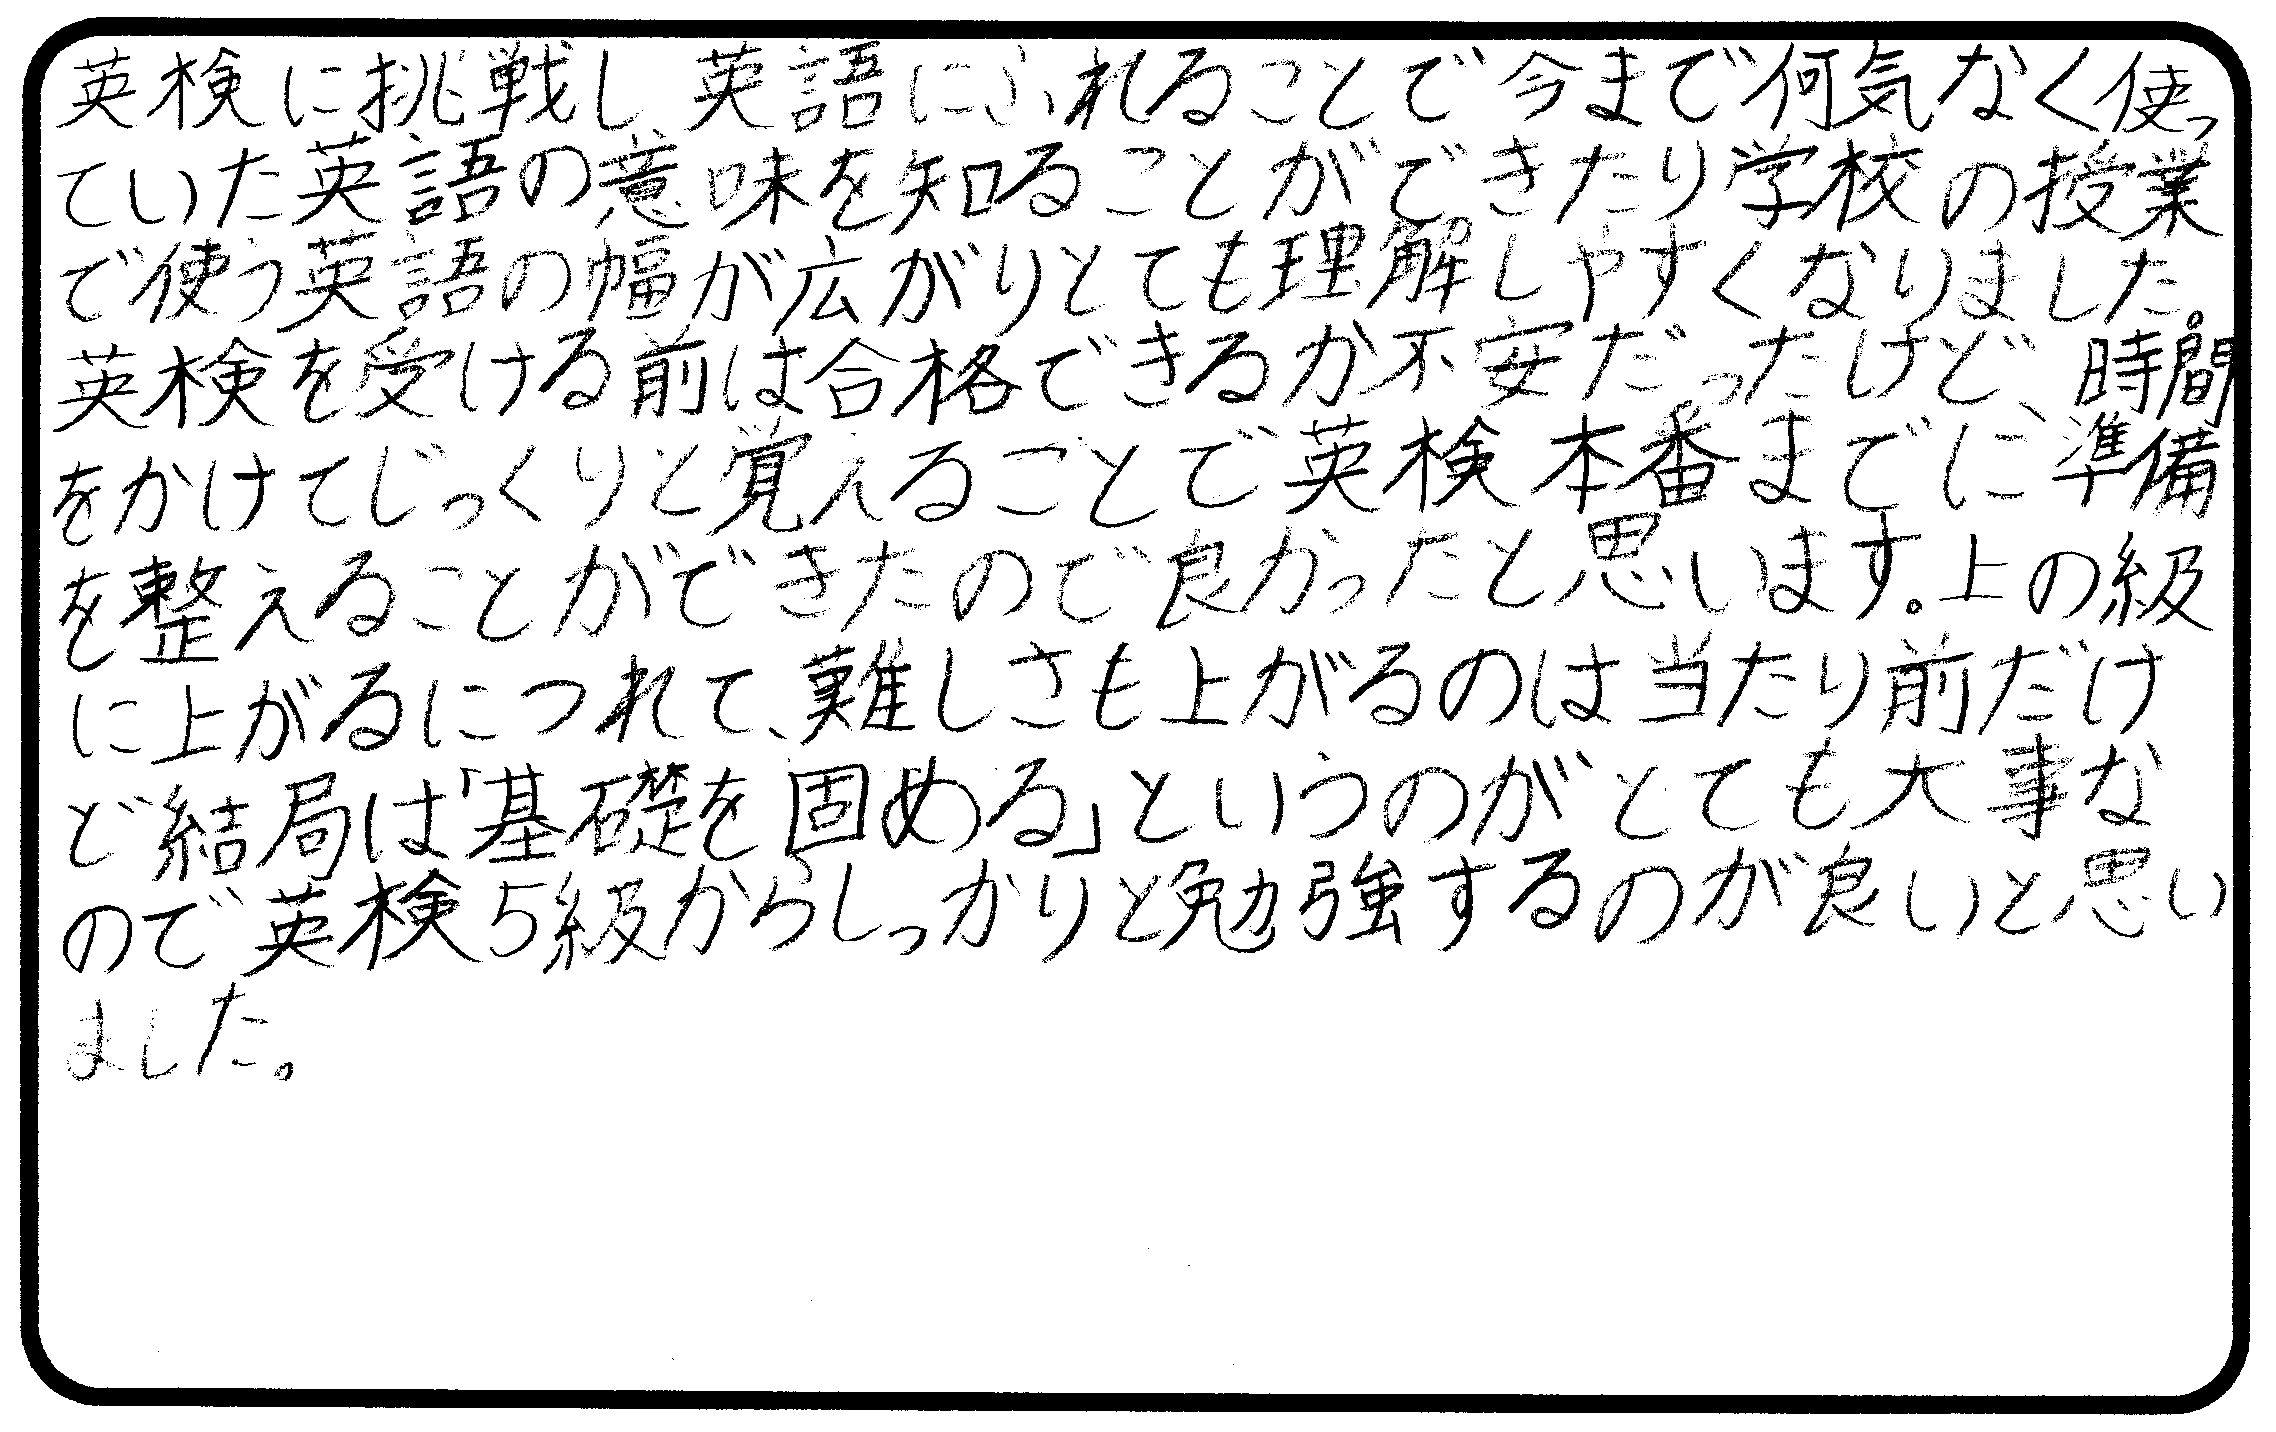 英検に挑戦し英語にふれることで今まで何気なく使っ
ていた英語の意味を知ることができたり学校の授業
で使う英語の幅が広がりとても理解しやすくなりました。
英検を受ける前は合格できるか不安だったけど、時間
をかけてじっくりと覚えることで英検本番までに準備
を整えることができたので良かったと思います。上の級
に上がるにつれて、難しさも上がるのは当たり前だけ
ど結局は「基礎を固める」というのがとても大事な
ので英検5級からしっかりと勉強するのが良いと思い
ました。